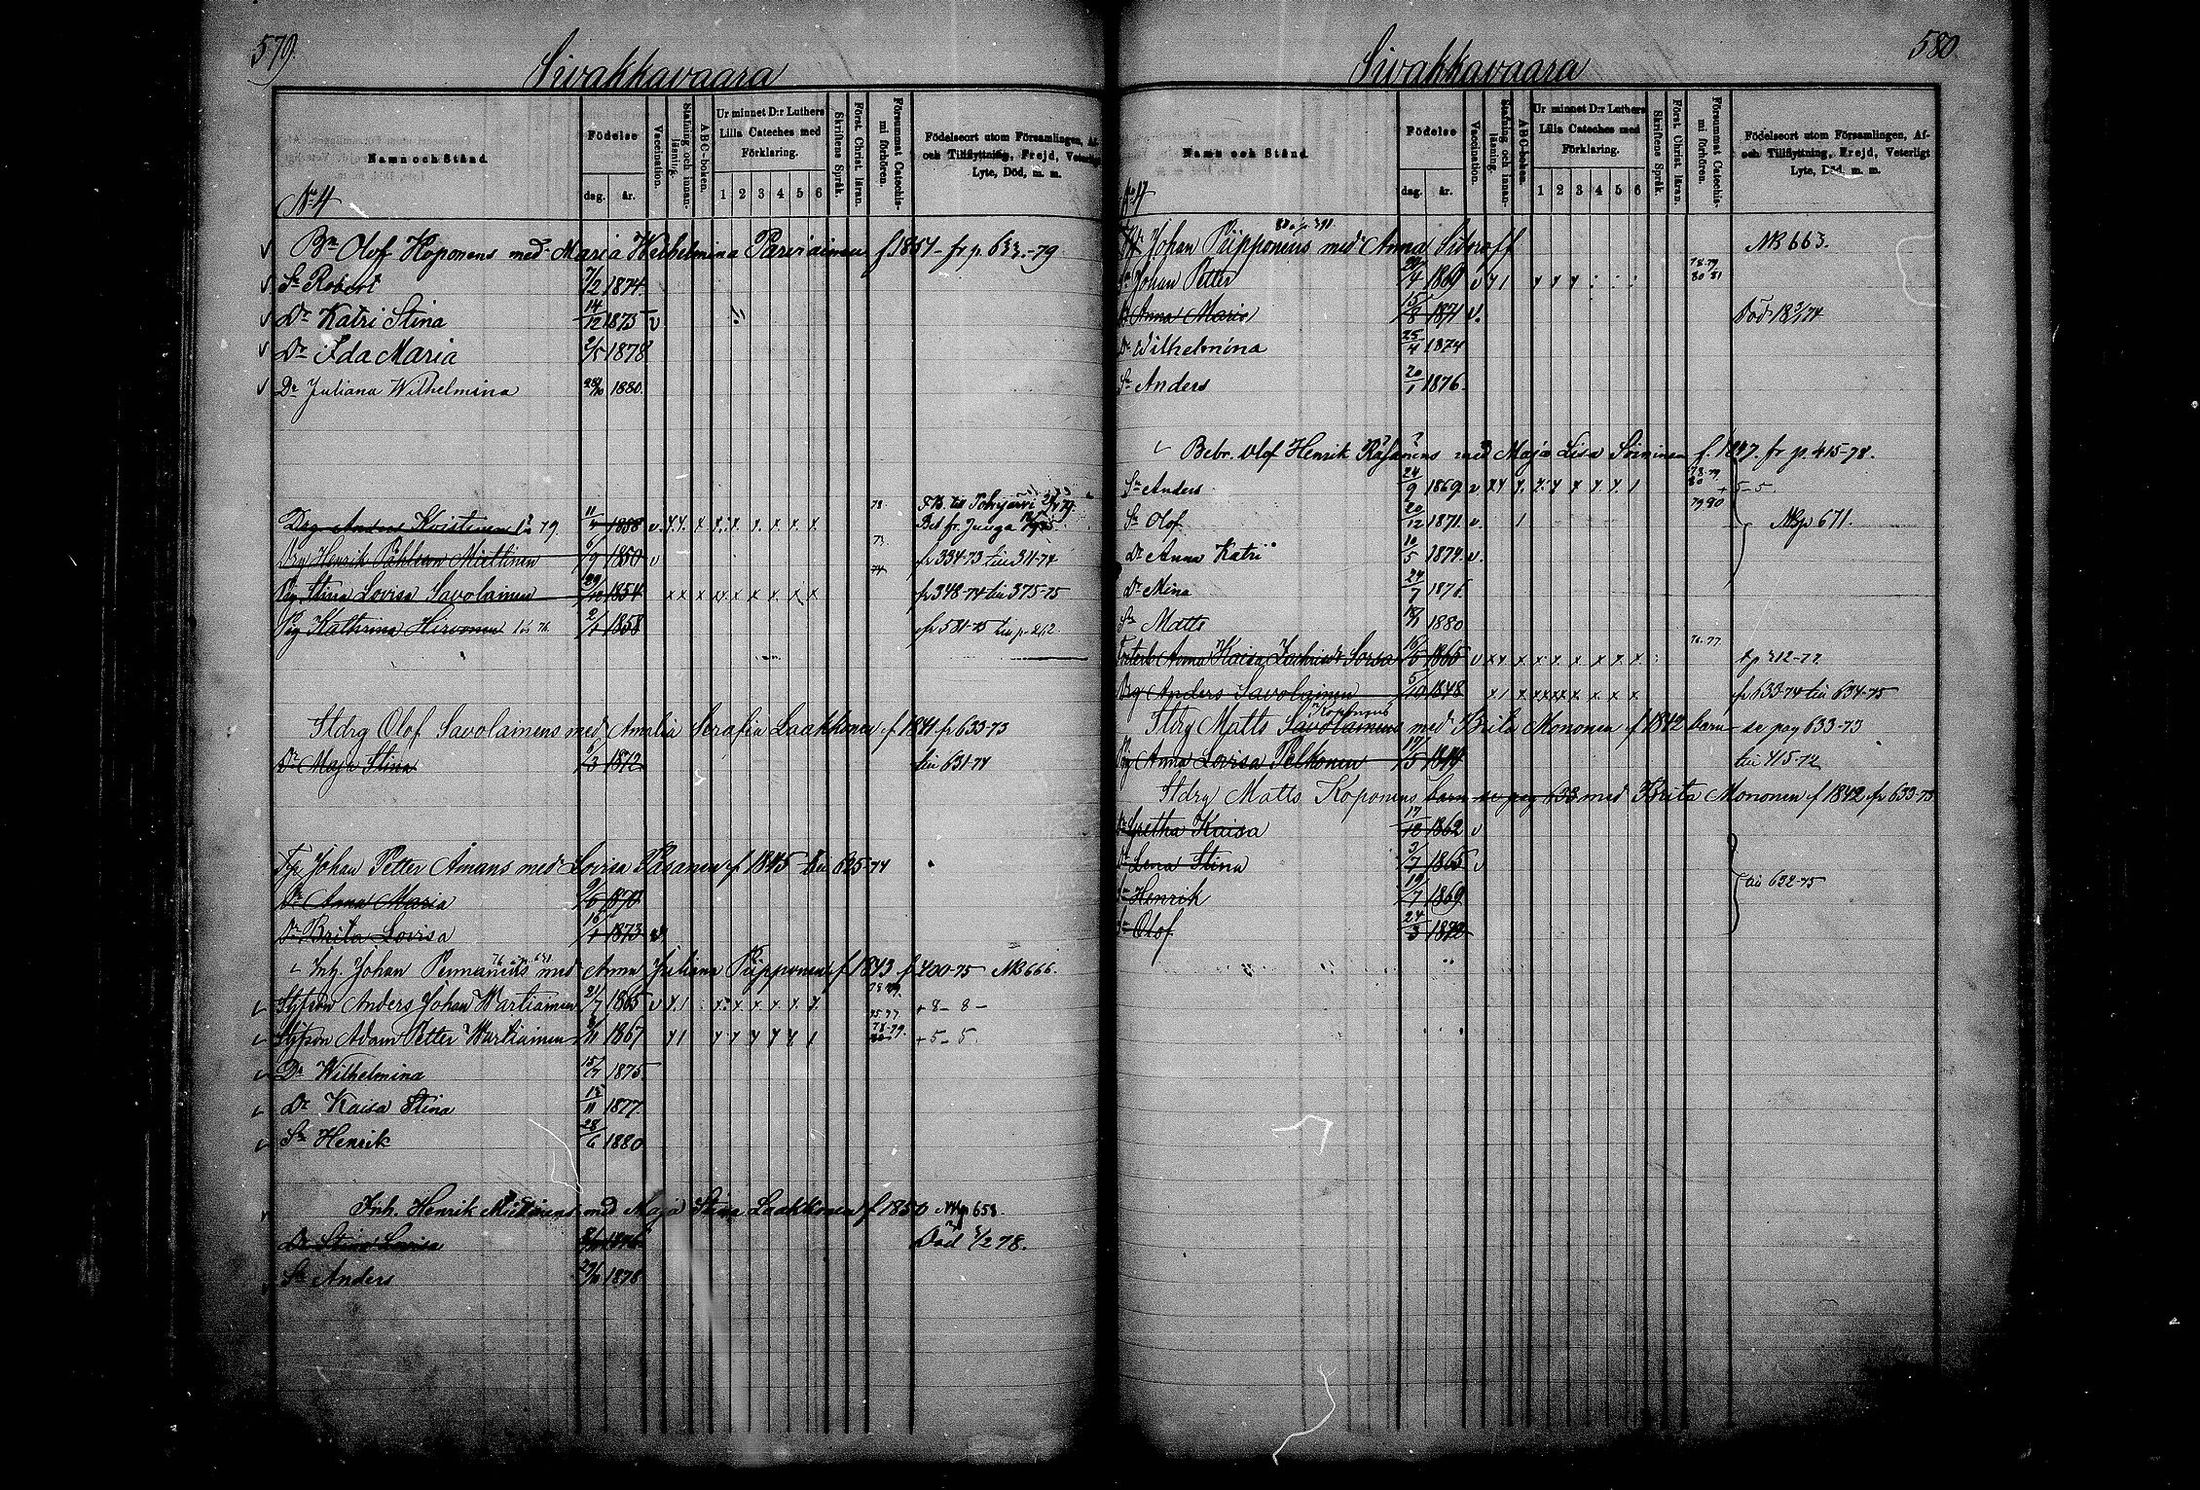 579.
Sivakkavaara
Namn och Stånd
Födelse
dag. år.
Vaccination.
Stafning och innan-läsning.
ABC-boken.
Ur minnet D:r Luthers Lilla Cateches med Förklaring.
1 2 3 4 5 6
Skriftens Språk.
Först. Christ. läran.
Försummat Catechismi förhören.
Födelseort utom Församlingen, Af- och Tillflyttning, Frejd, Veterligt Lyte, Död, m. m.
N:4
Bn Olof Koponens med Maria Wilhelmina Parviainen f. 1851 fr p 633-79
Sn Robert 7/2 1874
Dr Katri Stina 14/12 1875 v
Dr Ida Maria 2/5 1878
Dr Juliana Wilhelmina 1880.
Drg Anders Koistinen 79. 1858 v. x x x x x x x x x 78
Drg Henrik Miettinen 6/9 1850 v 73 74 fr 334-73 till 311-74
Pig Stina Lovisa Savolainen 29/10 1854 x x x x x x x x x fr 348-74 till 375-75
Pig Kathrina Hirvonen 76 2/1 1858 fr 581-75 till p. 262
Stdrg Olof Savolainens med Amalia Serafia Laakkonen f 1841 fr 633-73
Dr Maja Stina 1872 till 631-74
Johan Petter Åmans med Lovisa Räsänen f 1845 till 625-74
Dr Anna Maria 1870
Dr Brita Lovisa 16/1 1873 v
Inh. Johan Pennanens med Anna Juliana Piipponen f 1843 fr 400-75 NB 666.
Styfson Anders Johan Wartiainen 21/7 1865 v x 1 x x x x x x 78 79. + 8 - 8 -
Styfson Adam Petter Wartiainen 1867 x 1 x x x x x 1 75 77. 78-79. 80 + 5 - 5.
Dr Wilhelmina 1875
Dr Kaisa Stina 1877
Sn Henrik 28/6 1880
Inh. Henrik Miettinens med Maja Stina Laakkonen f 1850 NB p 653
Dr Stina Lovisa 1876 Död 2/2 78.
Sn Anders 1878
580
Sivakkavaara
Namn och Stånd.
Födelse
dag. år.
Vaccination.
Stafning och innan-läsning.
ABC-boken.
Ur minnet D:r Luthers Lilla Cateches med Förklaring.
1 2 3 4 5 6
Skriftens Språk.
Först. Christ. läran.
Försummat Catechismi förhören.
Födelseort utom Församlingen, Af- och Tillflyttning, Frejd, Veterligt Lyte, Död, m. m.
Johan Piipponens med Anna Sidoroff NB 663.
Sn Johan Petter 1869 v x 1 x x x 78-79 80 81
Dr Anna Maria 15/8 1871 v. Död 18
Dr Wilhelmina 25/4 1874
Sn Anders 20/1 1876
Bebr. Olof Henrik Räsänens med Maja Lisa Soininen f. 1847. fr p. 415-78.
Sn Anders 24/9 1869 v x x x. x x x x x 1 78 79 80 + 5 - 5
Sn Olof 20/12 1871 v. 1 79 80 NB p 671.
Dr Anna Katri 10/5 1874 v.
Dr Mina 24/7 1876
Sn Matts 1880
Fosterb Anna Kaisa Sorsa 1865 v x x x x x x x x x 76. 77
Drg Anders Savolainen 5/10 1848 x 1 x x x x x x x x fr 633-74 till 634-75
Stdrg Matts Savolainens Koponens med Brita Mononen f 1842 barn se pag 633-73
Pig Anna Lovisa Pelkonen 17/5 till 415-72
Stdrg Matts Koponens barn se pag 633 med Brita Mononen f 1842 fr 633-73
Dr Gretha Kaisa 1862 v
Dr Lena Stina 3/7 1865 v
Sn Henrik 19/7 1869 till 622-75
Sn Olof 24/3 1872